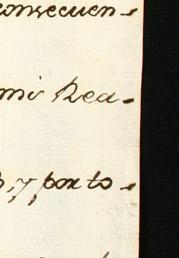 consecuen-
mi Rea-
, y por to-